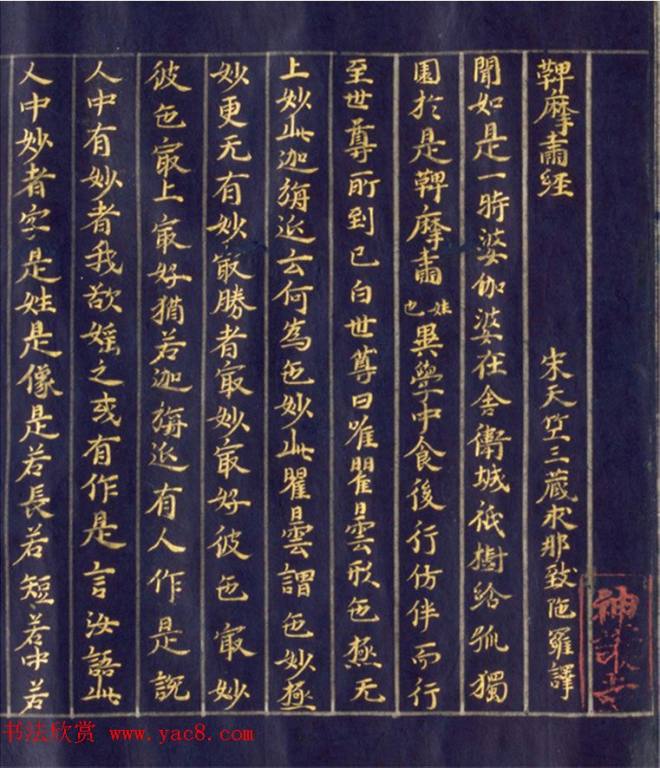 鞞摩肅經
宋天竺三藏求那跋陁羅譯
聞如是一時婆伽婆在舍衛城祇樹給孤獨
園於是鞞摩肅姓也異學中食後行仿佯而行
至世尊所到已白世尊曰唯瞿曇形色極无
上妙此迦旃延云何為色妙此瞿曇謂色妙極
妙更无有妙㝡勝者㝡妙㝡好彼色㝡妙
彼色㝡上㝡好猶若迦旃延有人作是說
人中有妙者我欲婬之或有作是言汝語此
人中妙者字是姓是像是若長若短若中若
神護寺
书法欣赏 www.yac8.com